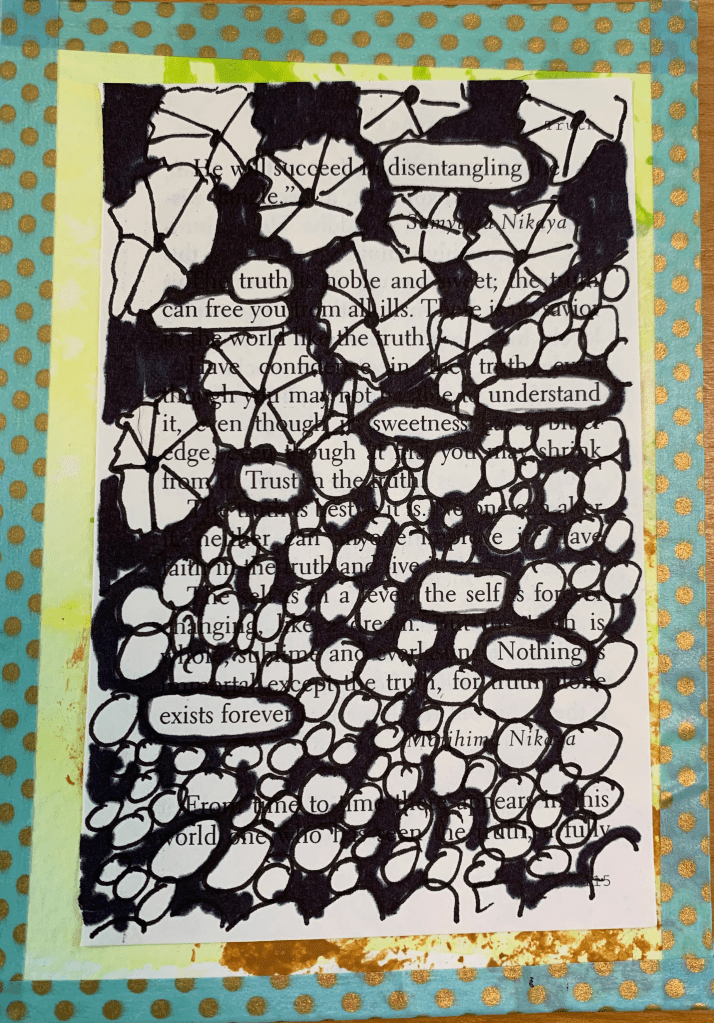 Truth
He will succeed in disentangling the
tangle."
Samyutta Nikaya
The truth is noble and sweet; the truth
can free you from all ills. There is no savior
in the world like the truth.
Have confidence in the truth, even
though you may not be able to understand
it, even though its sweetness has a bitter
edge, even though at first you may shrink
from it. Trust in the truth.
The truth is best as it is. No one can alter
it, neither can anyone improve it. Have
faith in the truth and live it.
The self is in a fever; the self is forever
changing, like a dream. But the truth is
whole, sublime and everlasting. Nothing is
immortal except the truth, for truth alone
exists forever.
Majjhima Nikaya
From time to time there appears in this
world one who has seen the truth, a fully
15